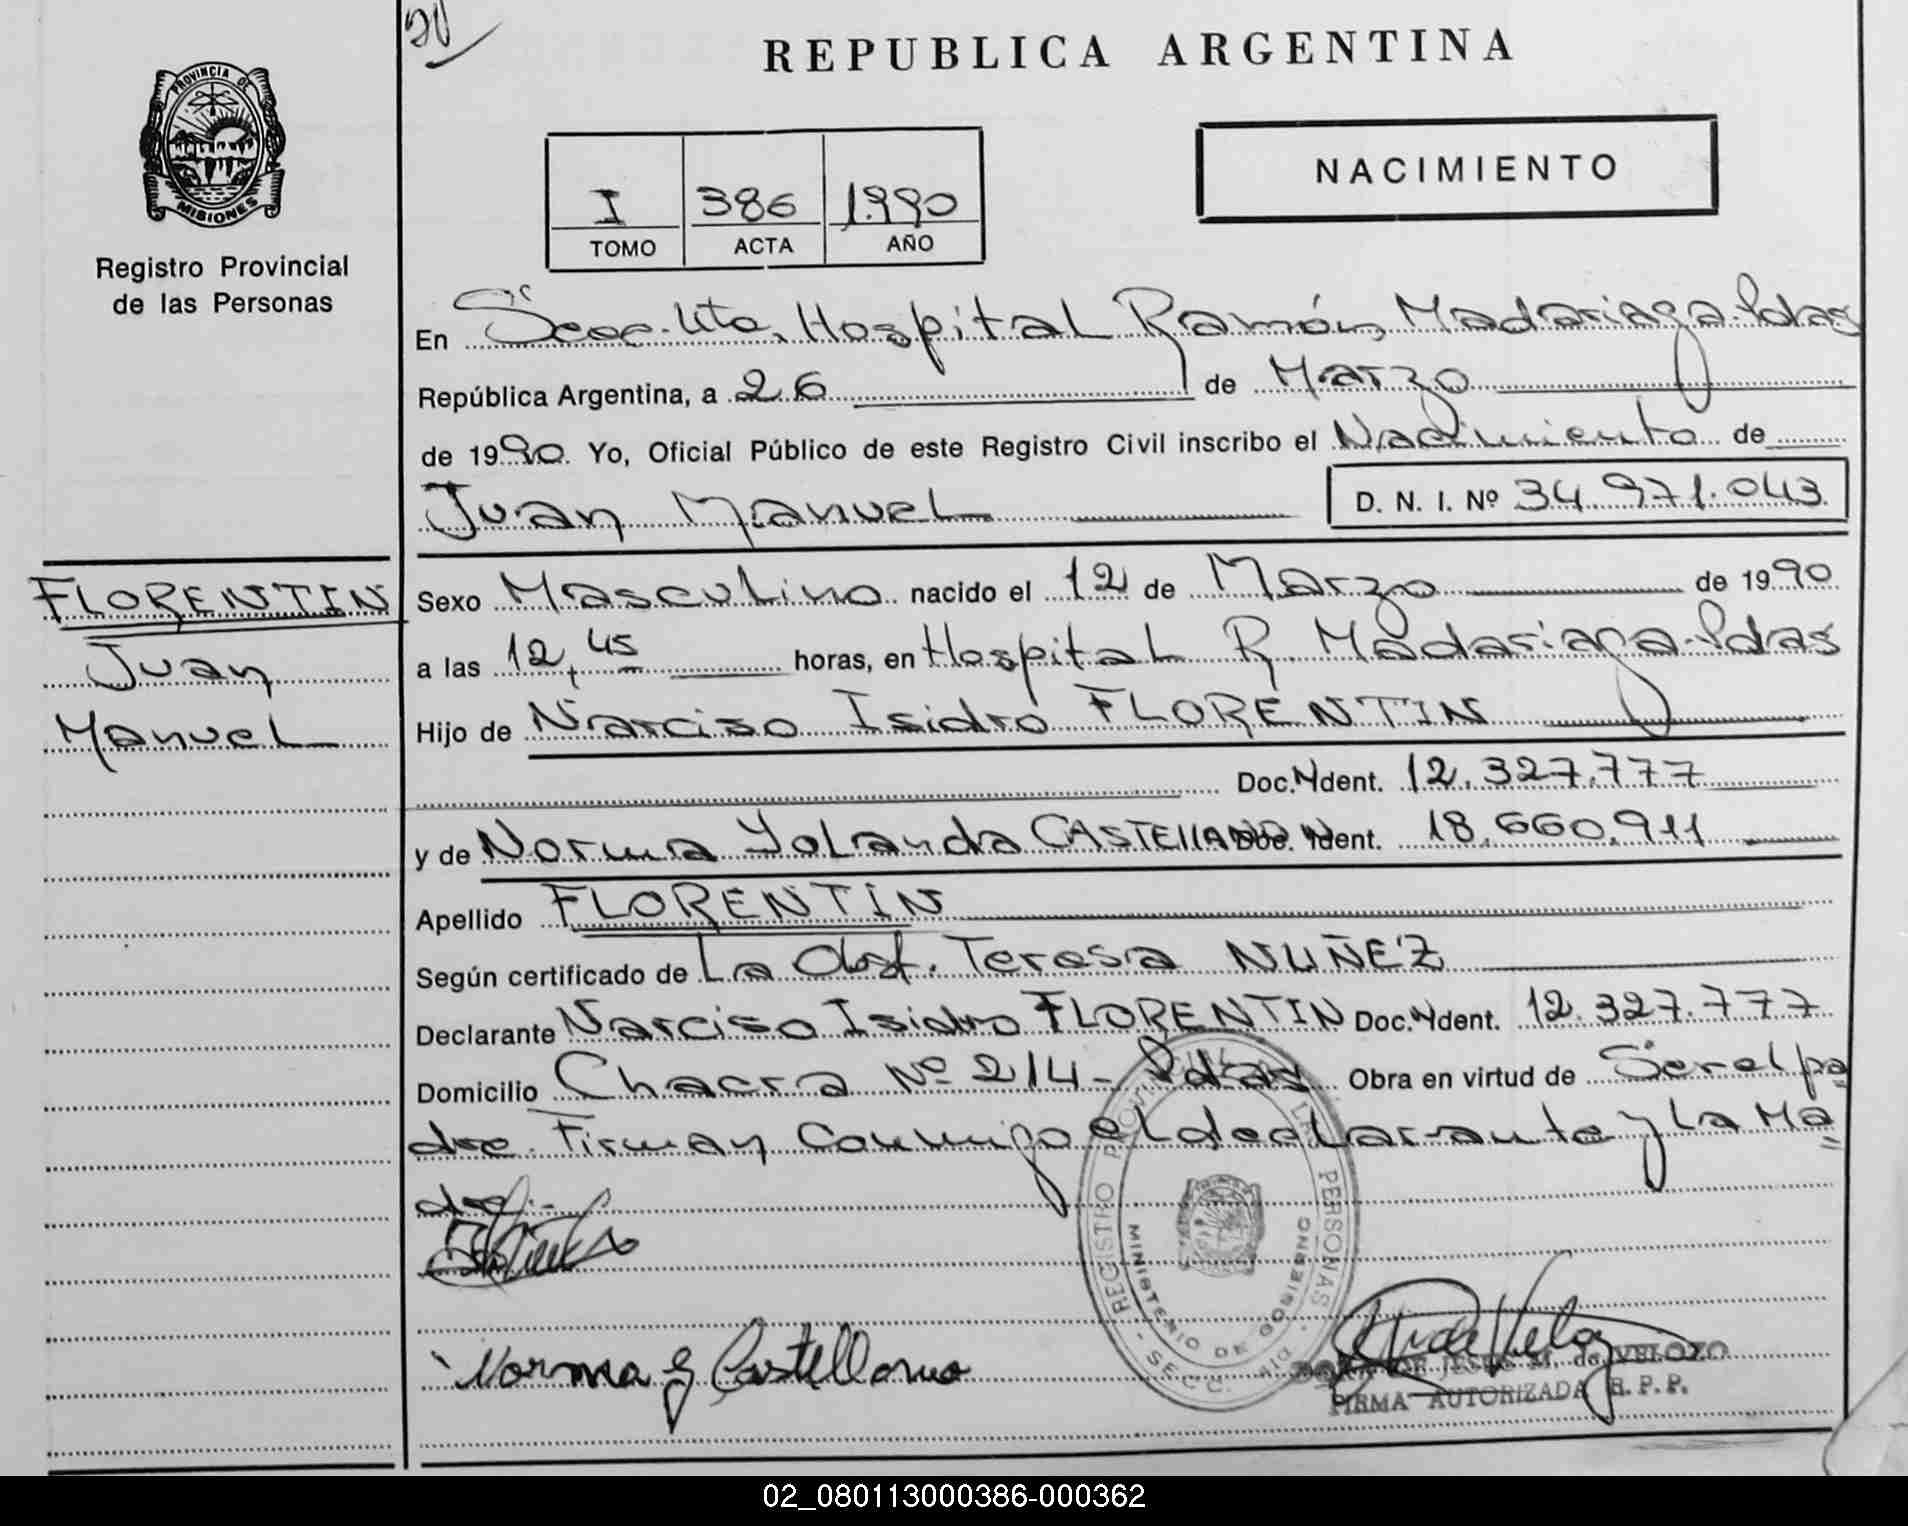 20
REPUBLICA ARGENTINA
PROVINCIA DE
MISIONES
Registro Provincial
de las Personas
I 386 1.990
TOMO ACTA AÑO
NACIMIENTO
En Secc. 4ta. Hospital Ramón Madariaga-Pdas
República Argentina, a 26 de Marzo
de 1990. Yo, Oficial Público de este Registro Civil inscribo el Nacimiento de
Juan Manuel D. N. I. Nº 34.971.043.
FLORENTIN
Juan
Manuel
Sexo Masculino nacido el 12 de Marzo de 1990
a las 12,45 horas, en Hospital R. Madariaga-Pdas
Hijo de Narciso Isidro FLORENTIN
Doc. N Ident. 12.327.777
y de Norma Yolanda CASTELLANO Doc. N Ident. 18.660.911
Apellido FLORENTIN
Según certificado de La Obst. Teresa NUÑEZ
Declarante Narciso Isidro FLORENTIN Doc. N Ident. 12.327.777
Domicilio Chacra Nº 214- Pdas Obra en virtud de Ser el pa
dre. Firman conmigo el declarante y la Ma
dre.-
REGISTRO PROVINCIAL DE LAS PERSONAS
MINISTERIO DE GOBIERNO
SECC.
Norma Y Castellano
JESUS M. de VELOZO
FIRMA AUTORIZADA R.P.P.
02_080113000386-000362